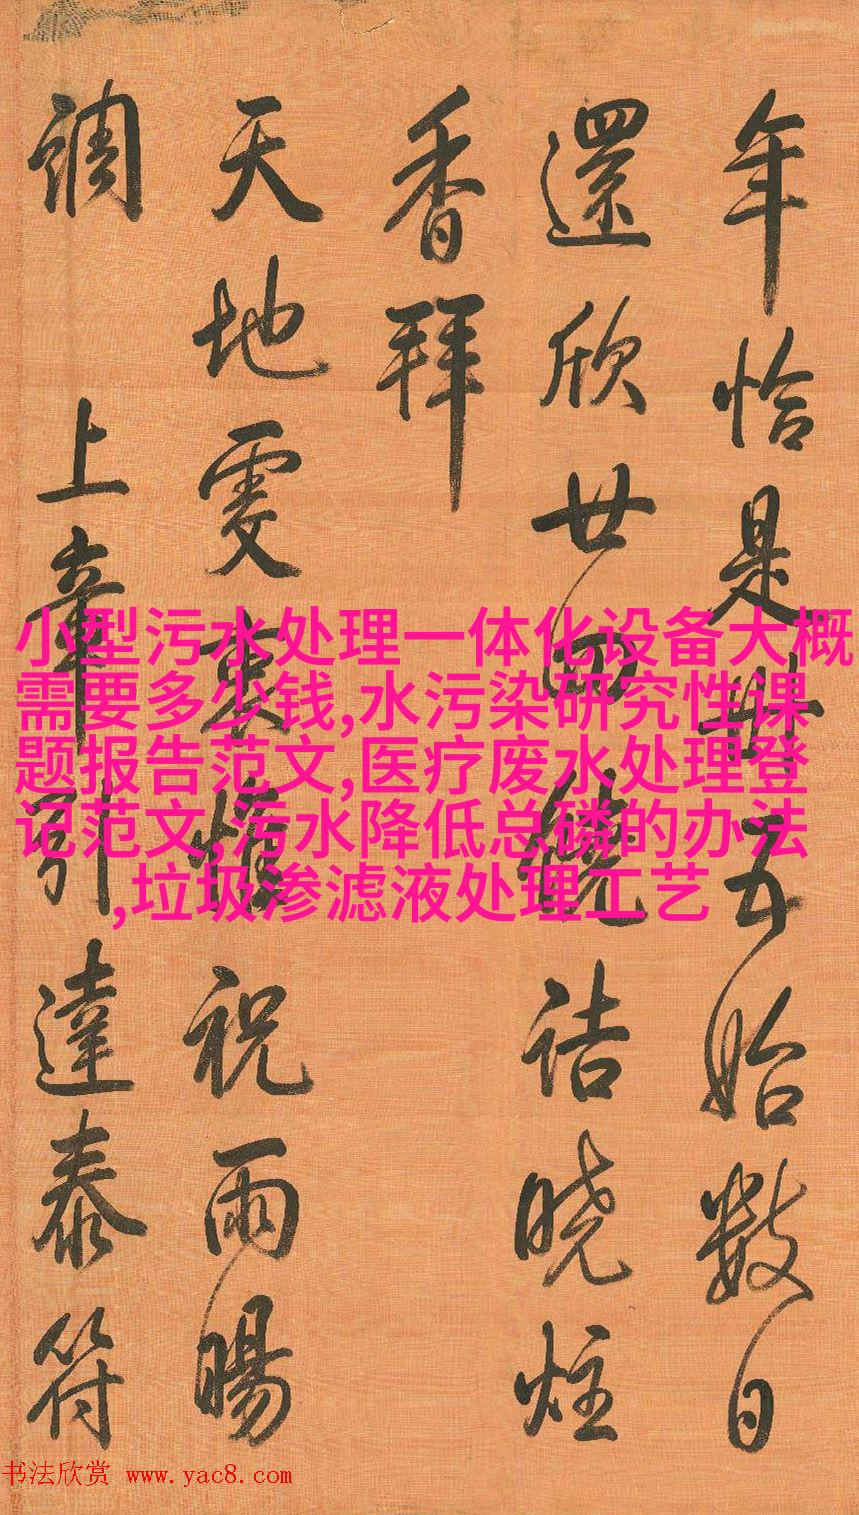 年恰是卅五始數日
還欣廿四纔詰曉炷
香拜
天地虔衷惟祝雨暘
調 上章引達泰符
小型污水处理一体化设备大概
需要多少钱,水污染研究性课
题报告范文,医疗废水处理登
记范文,污水降低总磷的办法
,垃圾渗滤液处理工艺
书法欣赏 www.yac8.com